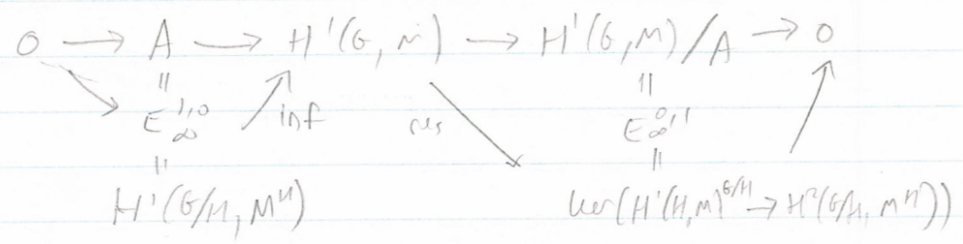 0 → A → H'(G,M) → H'(G,M)/A → 0
|| ||
E^{1,0}_∞ inf res E^{0,1}_∞
|| ||
H'(G/H, M^H) ker(H'(H,M)^{G/H} → H²(G/H, M^H))